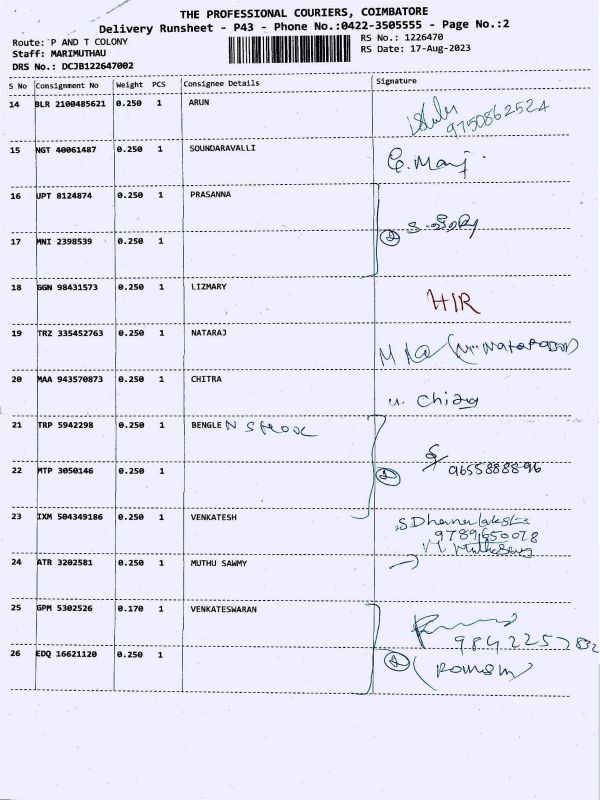 THE PROFESSIONAL COURIERS, COIMBATORE
Delivery Runsheet - P43 - Phone No.:0422-3505555 - Page No.:2
Route: P AND T COLONY
RS No.: 1226470
Staff: MARIMUTHAU
RS Date: 17-Aug-2023
DRS No.: DCJB122647002
S No Consignment No Weight PCS Consignee Details Signature
14 BLR 2100485621 0.250 1 ARUN
9750862524
15 NGT 40061487 0.250 1 SOUNDARAVALLI
G.Manj.
16 UPT 8124874 0.250 1 PRASANNA
2
17 MNI 2398539 0.250 1
18 GGN 98431573 0.250 1 LIZMARY
HIR
19 TRZ 335452763 0.250 1 NATARAJ
20 MAA 943570873 0.250 1 CHITRA
21 TRP 5942298 0.250 1 BENGLE
22 MTP 3050146 0.250 1
9655888896
23 IXM 504349186 0.250 1 VENKATESH
9789650078
24 ATR 3202581 0.250 1 MUTHU SAWMY
25 GPM 5302526 0.170 1 VENKATESWARAN
9842257832
26 EDQ 16621120 0.250 1